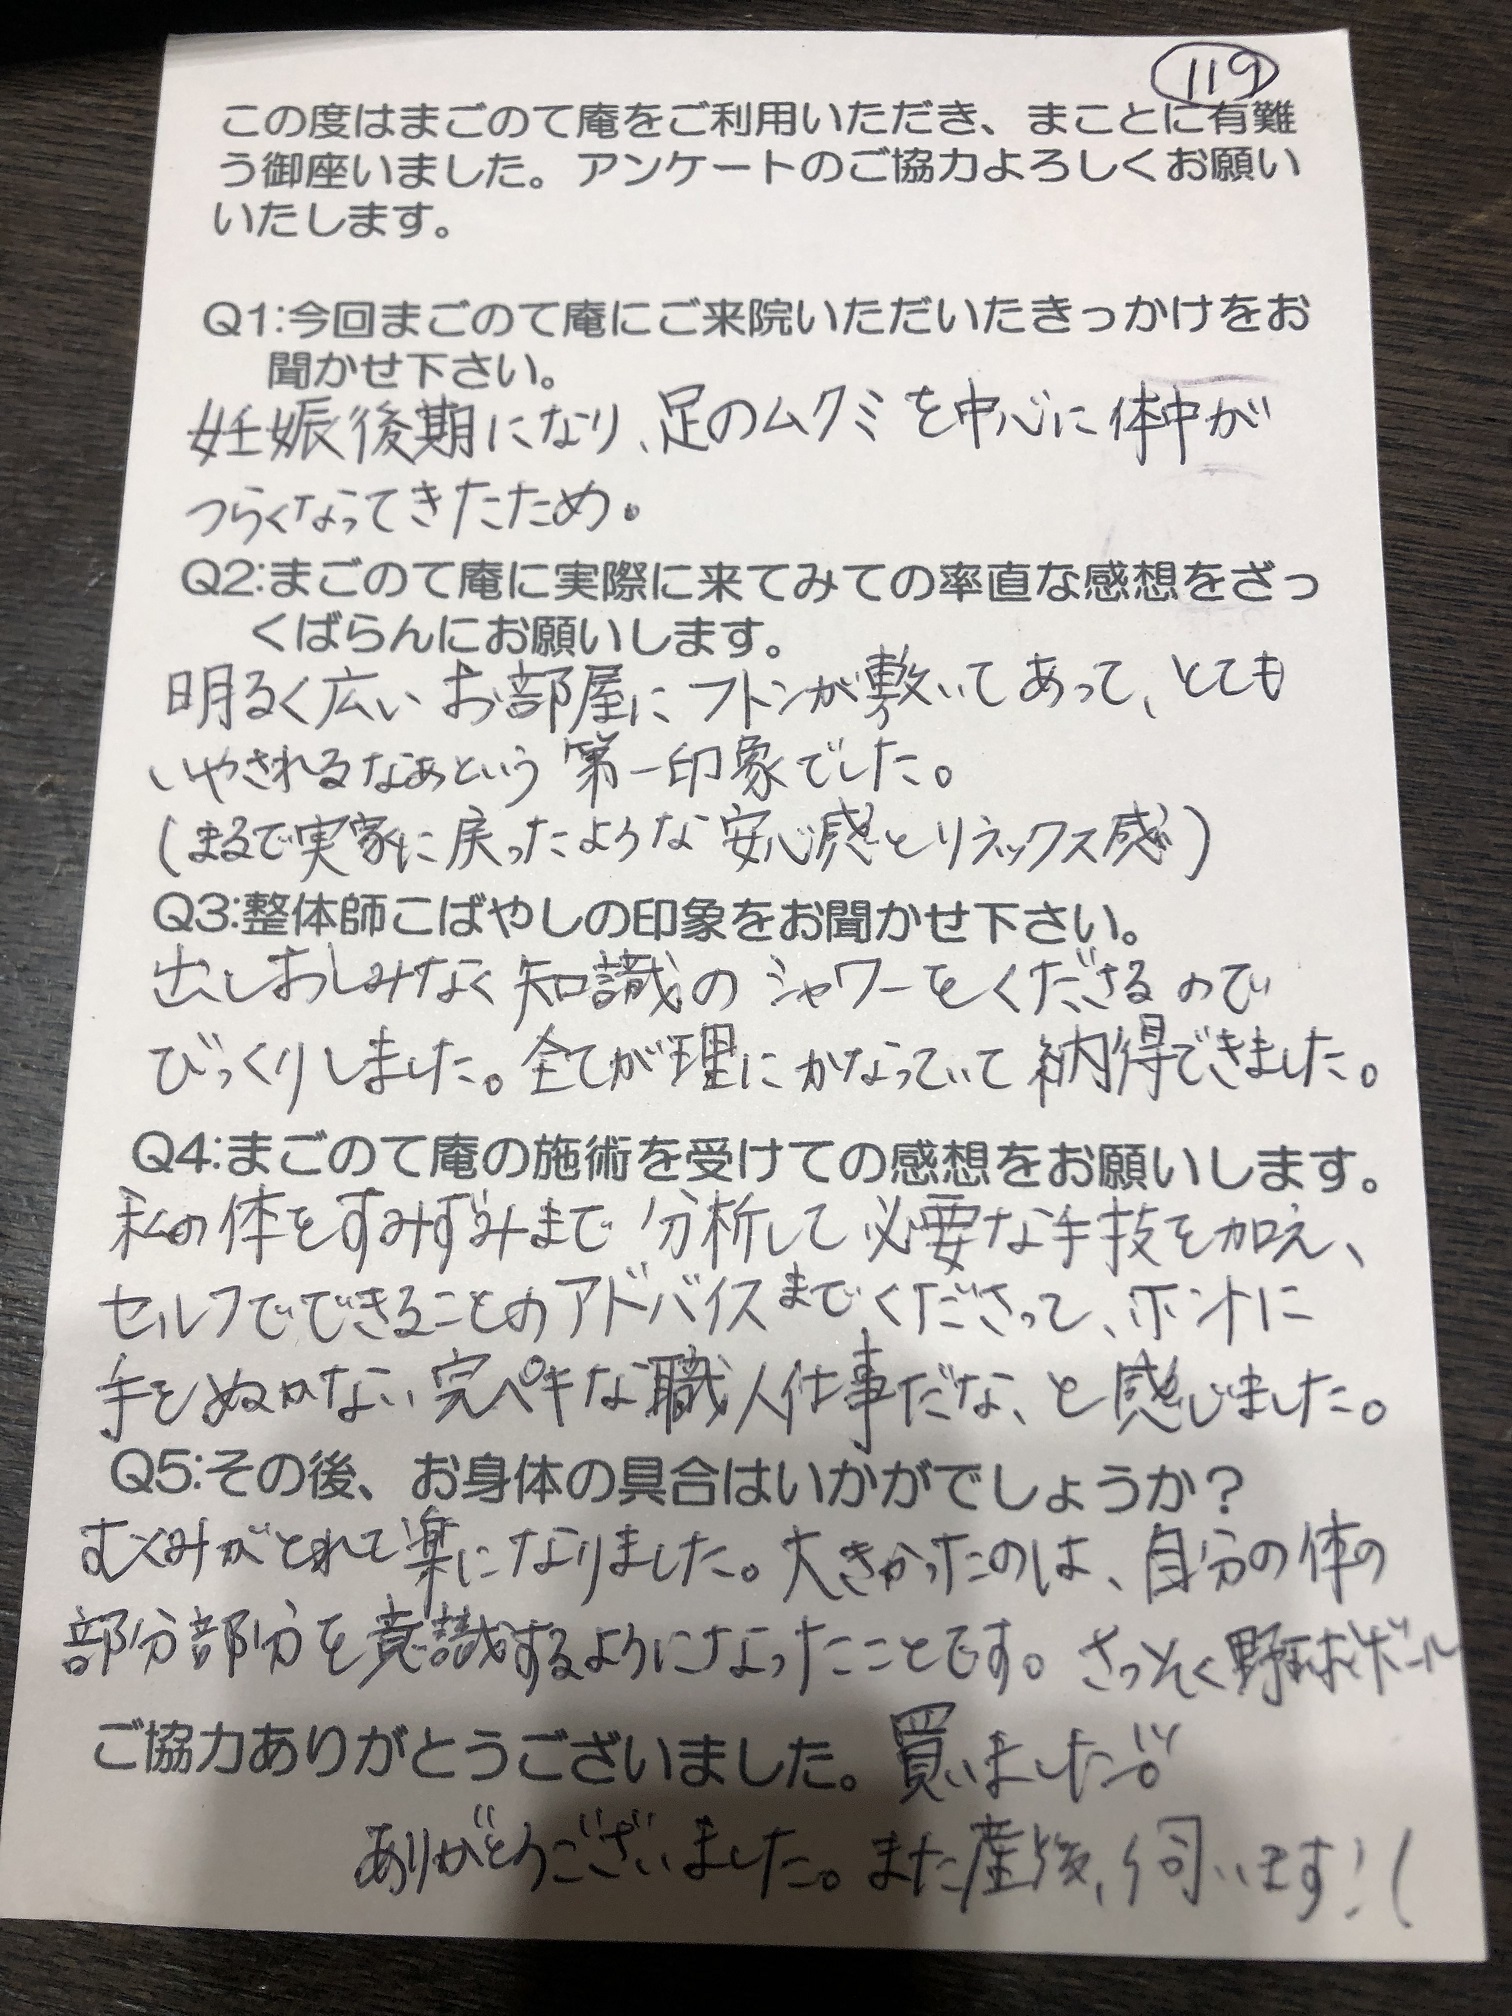 119
この度はまごのて庵をご利用いただき、まことに有難
う御座いました。アンケートのご協力よろしくお願い
いたします。
Q1:今回まごのて庵にご来院いただいたきっかけをお
聞かせ下さい。
妊娠後期になり、足のムクミを中心に体中が
つらくなってきたため。
Q2:まごのて庵に実際に来てみての率直な感想をざっ
くばらんにお願いします。
明るく広いお部屋にフトンが敷いてあって、とても
いやされるなぁという第一印象でした。
(まるで実家に戻ったような安心感とリラックス感)
Q3:整体師こばやしの印象をお聞かせ下さい。
出しおしみなく知識のシャワーをくださるので
びっくりしました。全てが理にかなっていて納得できました。
Q4:まごのて庵の施術を受けての感想をお願いします。
私の体をすみずみまで分析して必要な手技を加え、
セルフでできることのアドバイスまでくださって、ホントに
手をぬかない完ペキな職人仕事だな、と感じました。
Q5:その後、お身体の具合はいかがでしょうか？
むくみがとれて楽になりました。大きかったのは、自分の体の
部分部分を意識するようになったことです。さっそく野球ボール
ご協力ありがとうございました。買いました!!
ありがとうございました。また産後、伺います!!